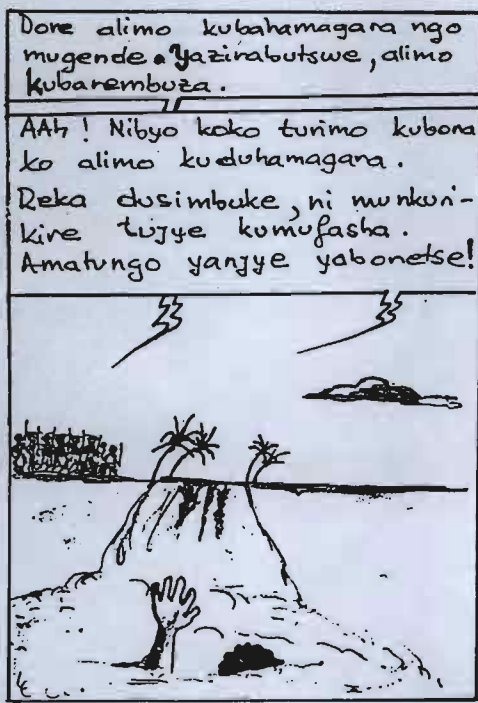 Dore alimo kubahamagara ngo
mugende. Yazirabutswe, alimo
kubarembuza.
AAh ! Nibyo koko turimo kubona
ko alimo kuduhamagara.
Reka dusimbuke, ni munkuri-
kire tujye kumufasha.
Amatungo yanjye yabonetse!